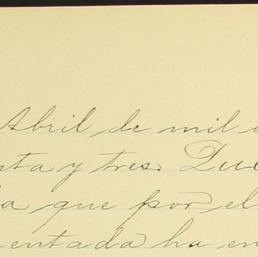 Abril de mil
sta y tres. Que
a que por el
entada ha en